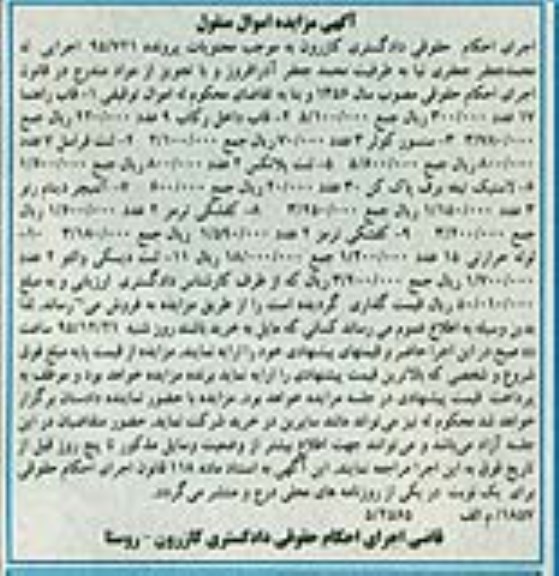 آگهی مزایده اموال منقول
اجرای احکام حقوقی دادگستری کازرون به موجب محتویات پرونده ۹۵/۷۳۱ اجرایی له
محمدجعفر جعفری نیا به طرفیت محمد جعفر آذرافروز و با تجویز از مواد مندرج در قانون
اجرای احکام حقوقی مصوب سال ۱۳۵۶ و بنا به تقاضای محکوم له اموال توقیفی ۱- قاب راهنما
۱۷ عدد ۳۰۰/۰۰۰ ریال جمع ۵/۱۰۰/۰۰۰ ۲- قاب داخل رکاب ۹ عدد ریال جمع
۳- سنسور کولر ۳ عدد ۷۰۰/۰۰۰ ریال جمع ۲/۱۰۰/۰۰۰ ۴- لنت ۷ عدد
۸۰۰/۰۰۰ ریال جمع ۵/۶۰۰/۰۰۰ ۵- لنت ۲ عدد ۸۰۰/۰۰۰ ریال جمع ۱/۶۰۰/۰۰۰
۶- لاستیک تیغه برف پاک کن ۳۰ عدد ۲۰/۰۰۰ ریال جمع ۶۰۰/۰۰۰ ۷- دینام
۳ عدد ریال جمع ۸- ترمز ۲ عدد ۱/۶۰۰/۰۰۰ ریال
جمع ۳/۲۰۰/۰۰۰ ۹- ترمز ۲ عدد ۱/۵۹۰/۰۰۰ ریال جمع ۳/۱۸۰/۰۰۰ ۱۰-
لوله حرارتی ۱۵ عدد ۱/۲۰۰/۰۰۰ جمع ۱۸/۰۰۰/۰۰۰ ریال ۱۱- لنت دیسکی ۲ عدد
۱/۷۰۰/۰۰۰ ریال جمع ریال که از طرف کارشناس دادگستری ارزیابی و به مبلغ
ریال قیمت گذاری گردیده است را از طریق مزایده به فروش می رساند. لذا
بدین وسیله به اطلاع عموم می رساند کسانی که مایل به خرید باشند روز شنبه ۹۵/۱۲/۲۱ ساعت
۱۰ صبح در این اجرا حاضر و قیمتهای پیشنهادی خود را ارایه نمایند. مزایده از قیمت پایه مبلغ فوق
شروع و شخصی که بالاترین قیمت پیشنهادی را ارایه نماید برنده مزایده خواهد بود و موظف به
پرداخت قیمت پیشنهادی در جلسه مزایده خواهد بود. مزایده با حضور نماینده دادستان برگزار
خواهد شد محکوم له نیز می تواند مانند سایرین در خرید شرکت نماید. حضور متقاضیان در این
جلسه آزاد می‌باشد و می توانند جهت اطلاع بیشتر از وضعیت وسایل مذکور تا پنج روز قبل از
تاریخ فوق به این اجرا مراجعه نمایند. این آگهی به استناد ماده ۱۱۸ قانون اجرای احکام حقوقی
برای یک نوبت در یکی از روزنامه های محلی درج و منتشر می گردد.
۱۸۵۷/ م الف ۵/۲۵۸۵
قاضی اجرای احکام حقوقی دادگستری کازرون - روستا